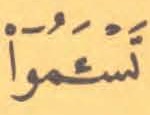 تَسْـَٔمُوٓاْ